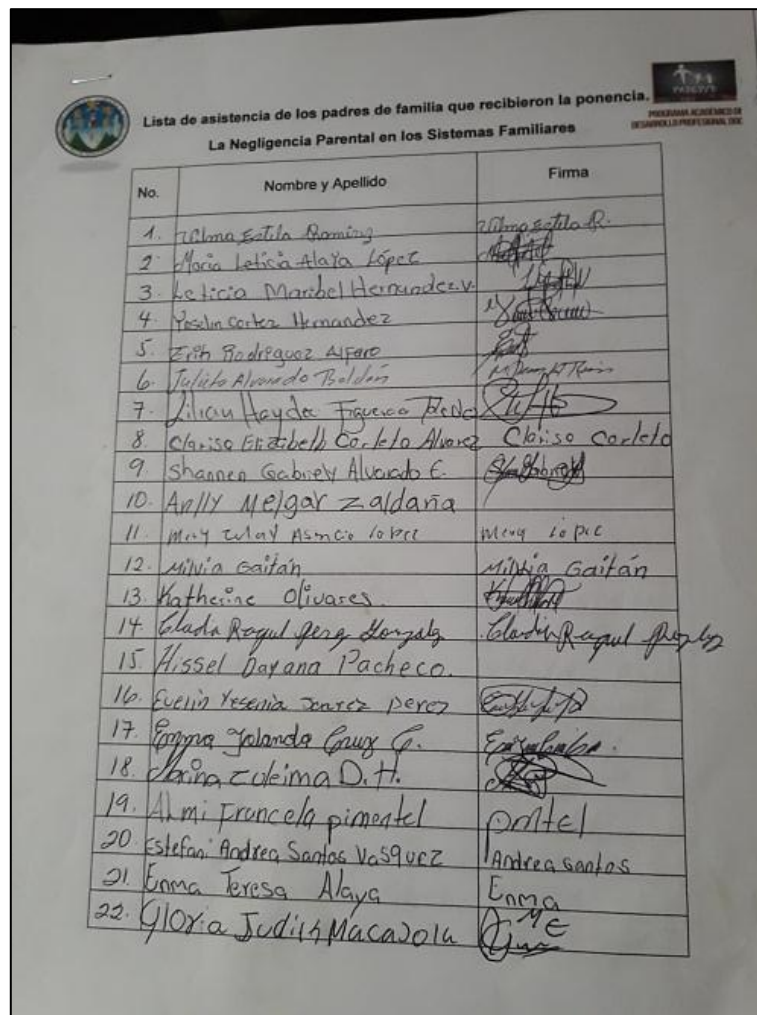 Lista de asistencia de los padres de familia que recibieron la ponencia.
La Negligencia Parental en los Sistemas Familiares
PROGRAMA ACADÉMICO DE
DESARROLLO PROFESIONAL DOCENTE
No. Nombre y Apellido Firma
1. Estila Ramirez Estila R.
2. Maria Leticia Alaya López
3. Leticia Maribel Hernandez.V.
4. Yoselin Cortez Hernandez
5. Erih Rodriguez Alfaro
6. Julieta Alvarado Roldán
7. Lilian Hayde Figueroa
8. Clarisa Elizabeth Corleto Alvarez Clarisa Corleto
9. Shannen Gabriely Alvarado E.
10. Anlly Melgar Zaldaña
11. Mery Asencio lopez Mery lopez
12. Milvia Gaitán Milvia Gaitán
13. Katherine Olivares.
14. Raquel
15. Hissel Dayana Pacheco.
16. Evelin Yesenia perez
17. Emma Yolanda Cruz C.
18. Zuleima D.H.
19. Almi Francela pimentel
20. Estefani Andrea Santos Vasquez Andrea Santos
21. Enma Teresa Alaya Enma
22. Gloria Judith